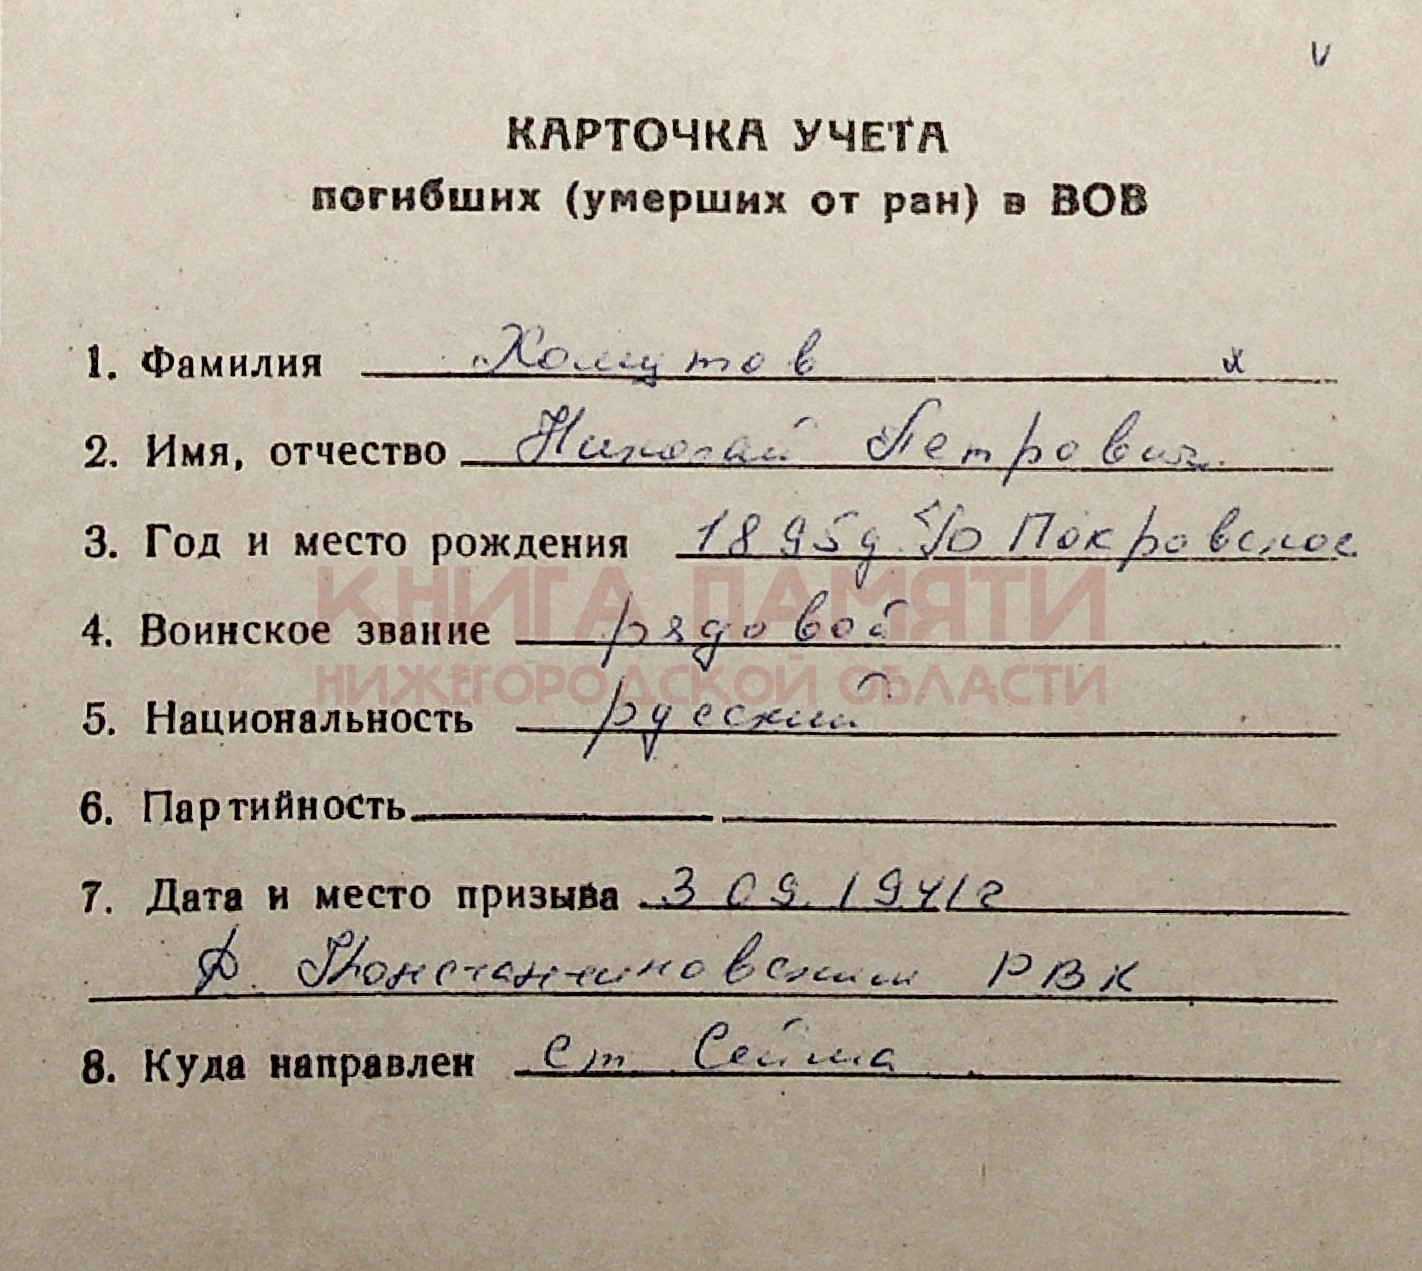 v
КАРТОЧКА УЧЕТА
погибших (умерших от ран) в ВОВ
1. Фамилия Хомутов х
2. Имя, отчество Николай Петрович
3. Год и место рождения 1895г. с/о Покровское
КНИГА ПАМЯТИ
4. Воинское звание рядовой
НИЖЕГОРОДСКОЙ ОБЛАСТИ
5. Национальность русский
6. Партийность
7. Дата и место призыва 3 09. 1941г
Д. Константиновским РВК
8. Куда направлен Ст. Сейма